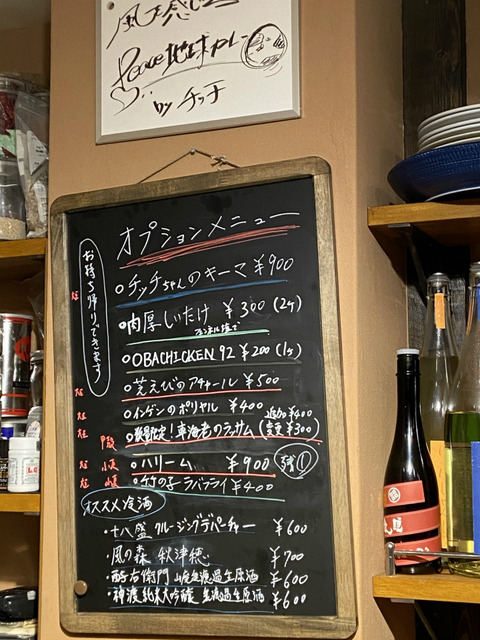 風を感じ
Peace地球カレー
by チッチ
オプションメニュー
お持ち帰りできます
○チッチちゃんのキーマ ¥900
○肉厚しいたけ ¥300 (2ケ)
○OBACHICKEN 92 ¥200 (1ケ)
○芝えびのアチャール ¥500
○インゲンのポリヤル ¥400
追加¥400
○数量限定!車海老のラッサム (変更¥300)
○ハリーム ¥900 残①
○竹の子ーラバブライ ¥400
オススメ冷酒
・十八盛 クルージングデパーチャー ¥600
・風の森 秋津穂 ¥700
・酔右衛門 山廃無濾過生原酒 ¥600
・神渡 純米大吟醸 無濾過生原酒 ¥600